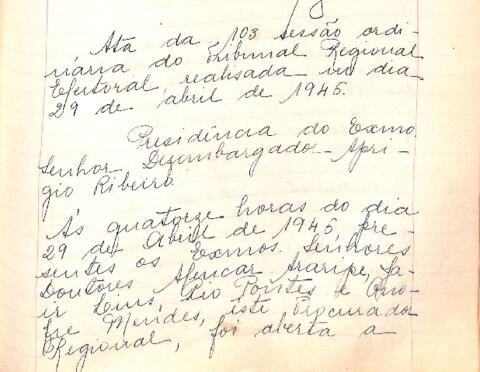 Ata da 103 sessão ordi-
nária do Tribunal Regional
Eleitoral, realisada no dia
29 de abril de 1946.
Presidência do Exmo.
Senhor Dezembargado Apri-
gio Ribeiro.
Ás quatorze horas do dia
29 de Abril de 1946, pre-
sentes os Exmos. Senhores
Doutores Alencar Araripe, Ja-
ir Lins, Pontes e Ono-
fre Mendes, êste Procurador
Regional, foi aberta a